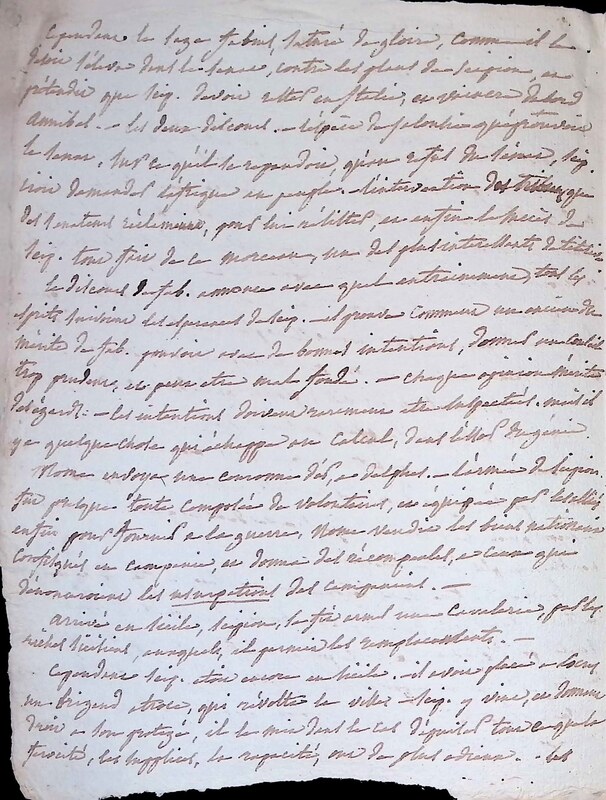 Cependant le sage Fabius, saturé de gloire, comme il le
devoit s'éleva dans le sénat, contre les plans de Scipion, et
prétendit que Scip. devoit rester en Italie, et vaincre d'abord
Annibal. — les deux discours. — l'espèce de qu'éprouvoit
le sénat, sur ce qu'il se répandoit, qu'au refus du sénat, Scip.
iroit demander l'affrique au peuple. — l'intervention des tribuns que
des sénateurs réclamèrent, pour lui résister, et enfin le succès de
Scip. tout fait de ce morceau, un des plus intéressants de
le discours de Fab. annonce avec quel entrainement, tous les
esprits suivoient les espérances de Scip. — il prouve comment un ancien de
mérite de Fab. pouvoit avec de bonnes intentions, donner un conseil
trop prudent, et peut etre mal fondé. — chaque opinion mérite
des égards: — les intentions doivent rarement etre suspectées. mais il
y a quelque chose qui échappe au calcul, dans l'essor du génie
Rome envoya une couronne d'or, a delphes. — l'armée de Scipion
fut presque toute composée de volontaires, et équipée par les alliés
enfin pour fournir a la guerre, Rome vendit les biens nationaux
confisqués en campanie, et donna des récompenses, a ceux qui
dénonceroient les usurpations des campaniens. —
arrivé en Sicile, Scipion, se fit armer une Cavalerie, par les
riches Siciliens, auxquels, il permit les remplacements. —
Cependant Scip. etoit encore en Sicile. il avoit placé a Locres
un brigand atroce, qui révolta la ville — Scip. y vint, et donnant
droit a son protégé, il le mit dans le cas d'épuiser tout ce que la
férocité, les supplices, la rapacité, ont de plus odieux. — les